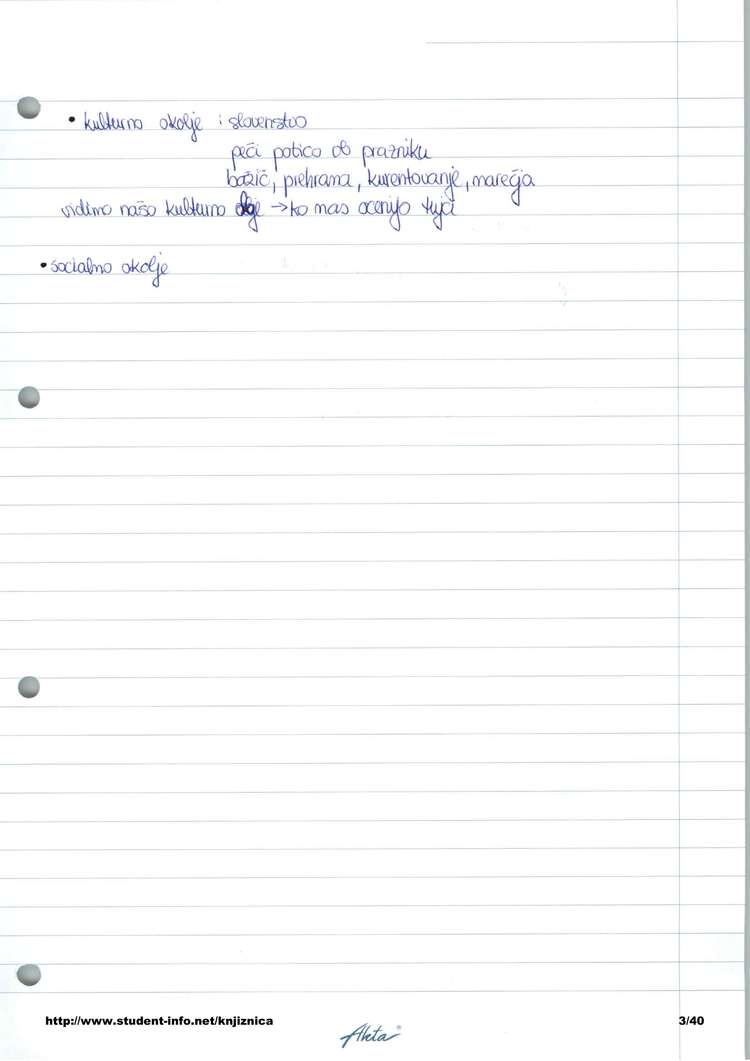 • kulturno okolje : slovenstvo
peči potico ob prazniku
božič, prehrana, kurentovanje, narečja
vidimo našo kulturno okolje → ko nas ocenijo tujci
• socialno okolje
http://www.student-info.net/knjiznica
3/40
Akta